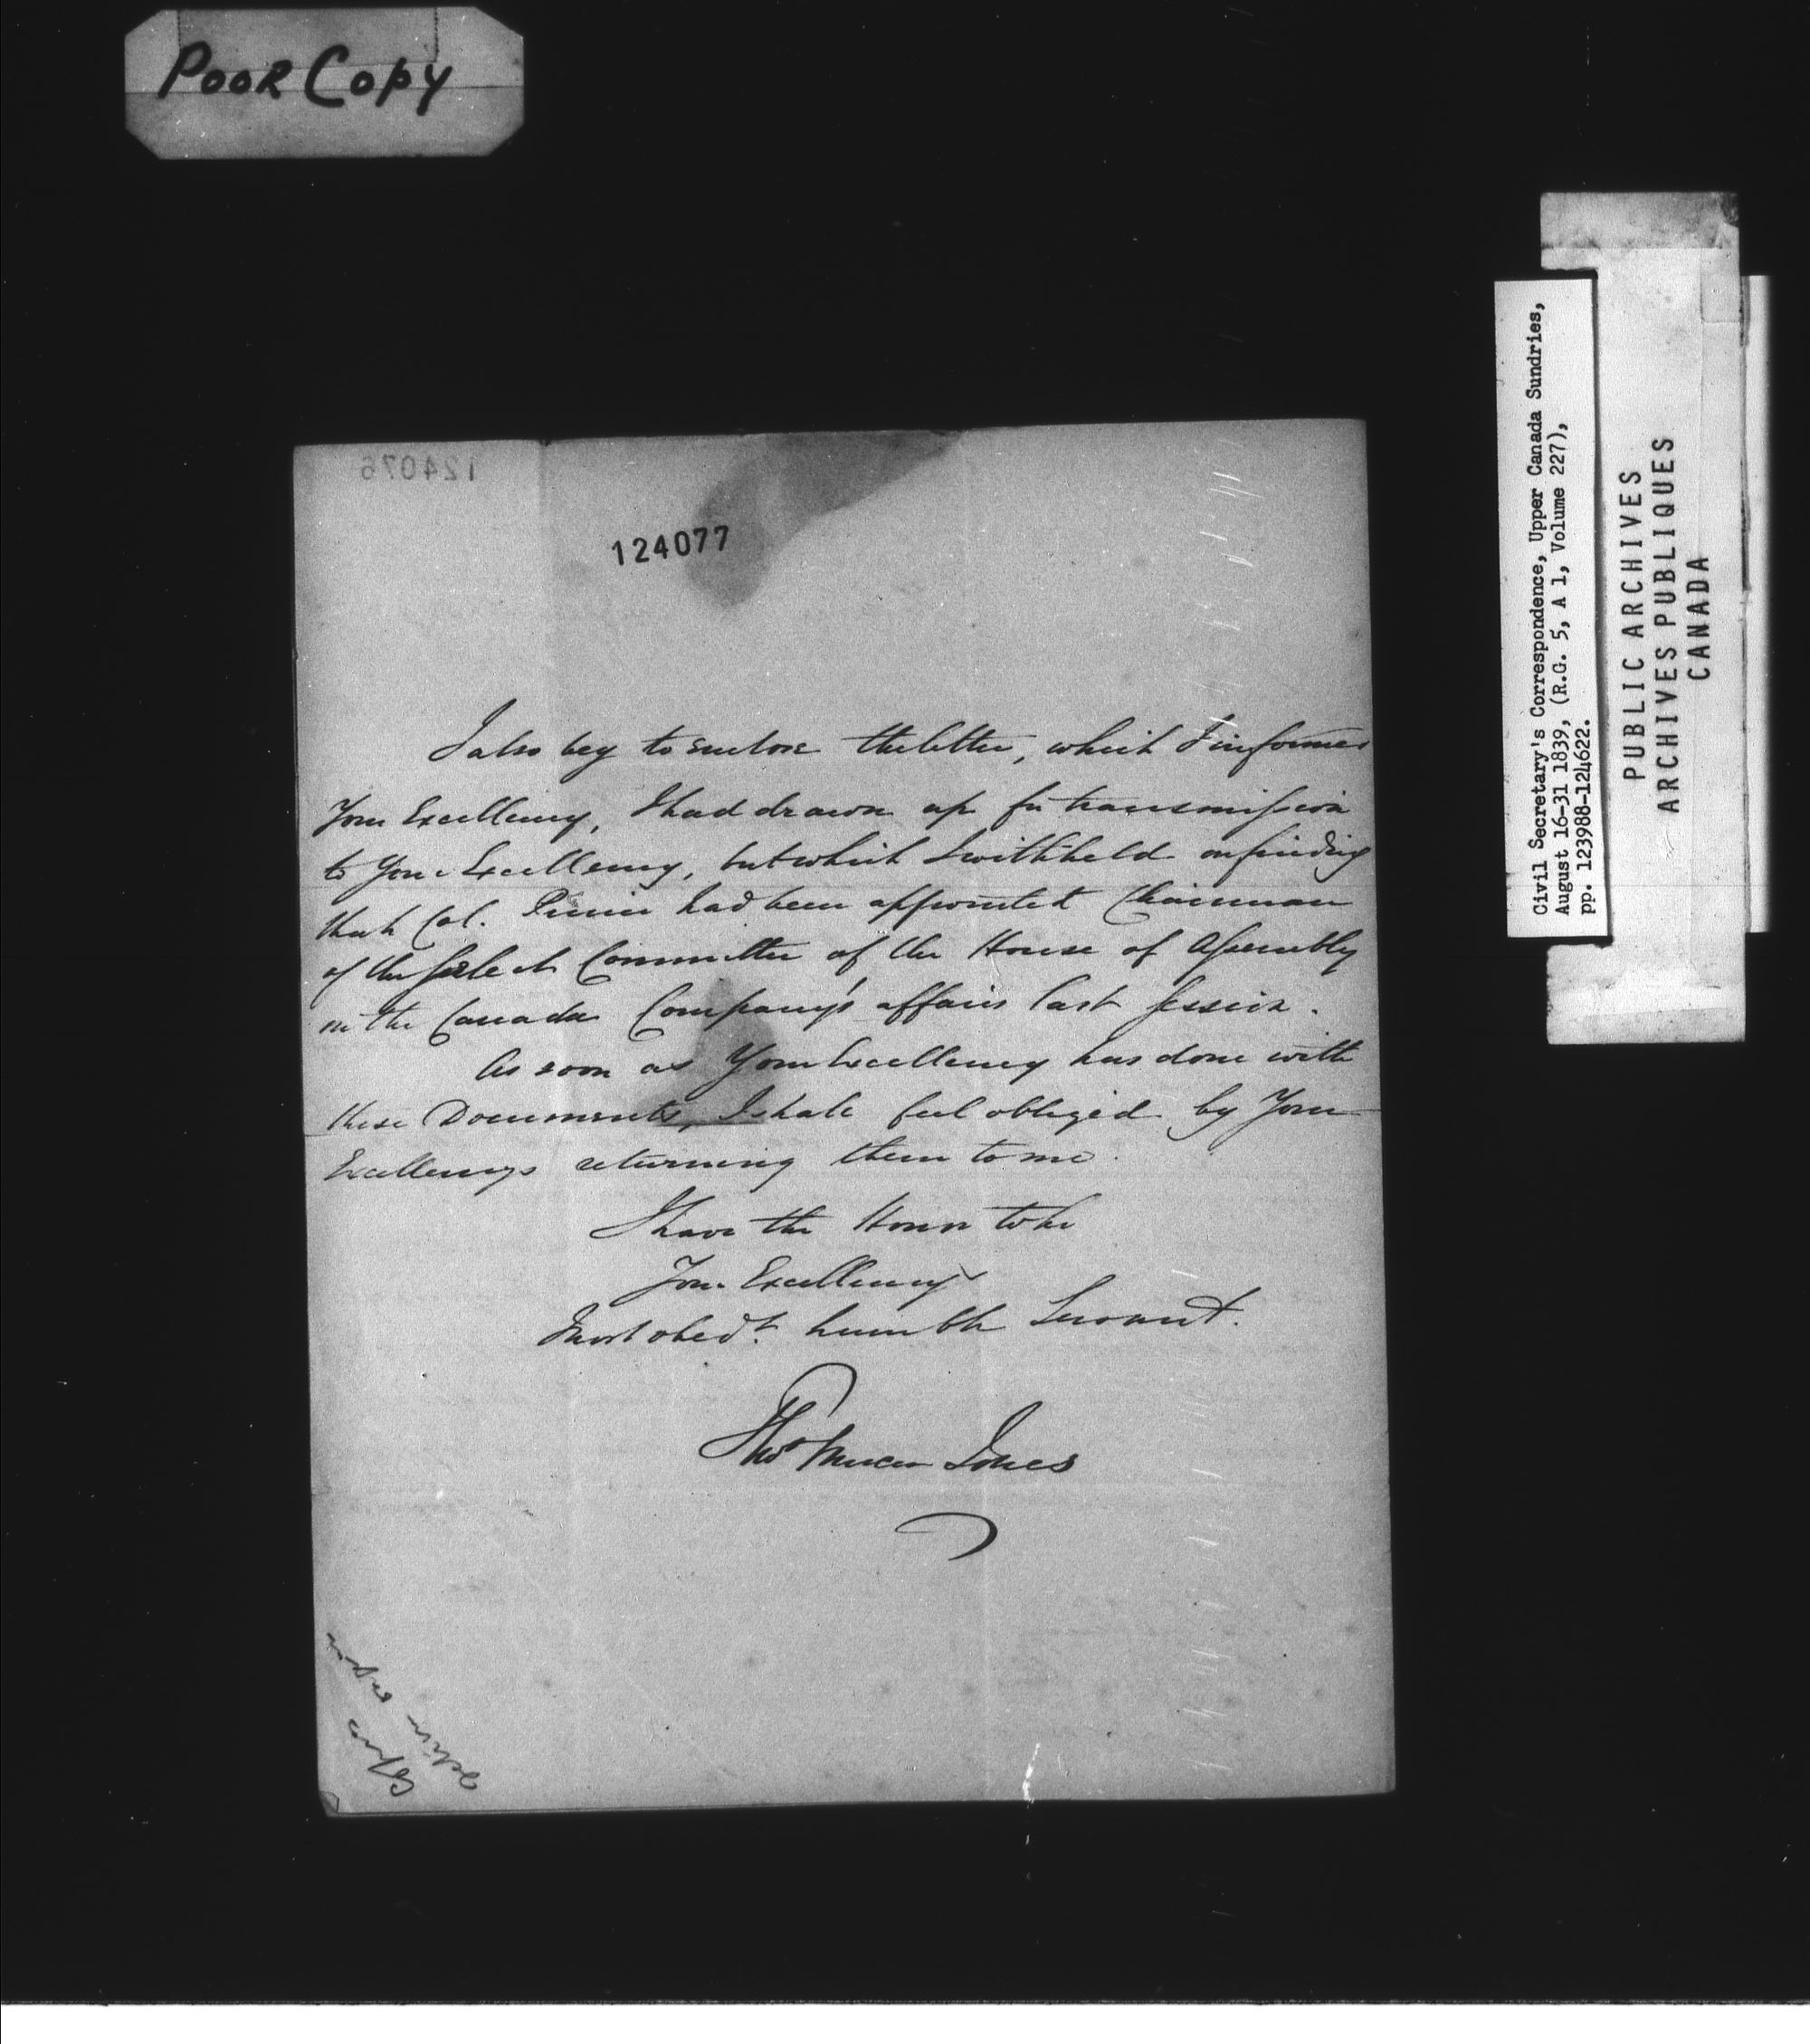 Poor Copy
124076
124077
I also beg to enclose the letter, which I informed
Your Excellency, I had drawn up for transmission
to Your Excellency, but which I withheld on finding
that Col. Prince had been appointed Chairman
of the Select Committee of the House of Assembly
on the Canada Company's affairs last session.
As soon as Your Excellency has done with
these Documents, I shall feel obliged by Your
Excellency's returning them to me.
I have the Honor to be
Your Excellency's
Most obedt. humble Servant.
Thos Mercer Jones
Civil Secretary's Correspondence, Upper Canada Sundries,
August 16-31 1839, (R.G. 5, A 1, Volume 227),
pp. 123988-124622.
PUBLIC ARCHIVES
ARCHIVES PUBLIQUES
CANADA